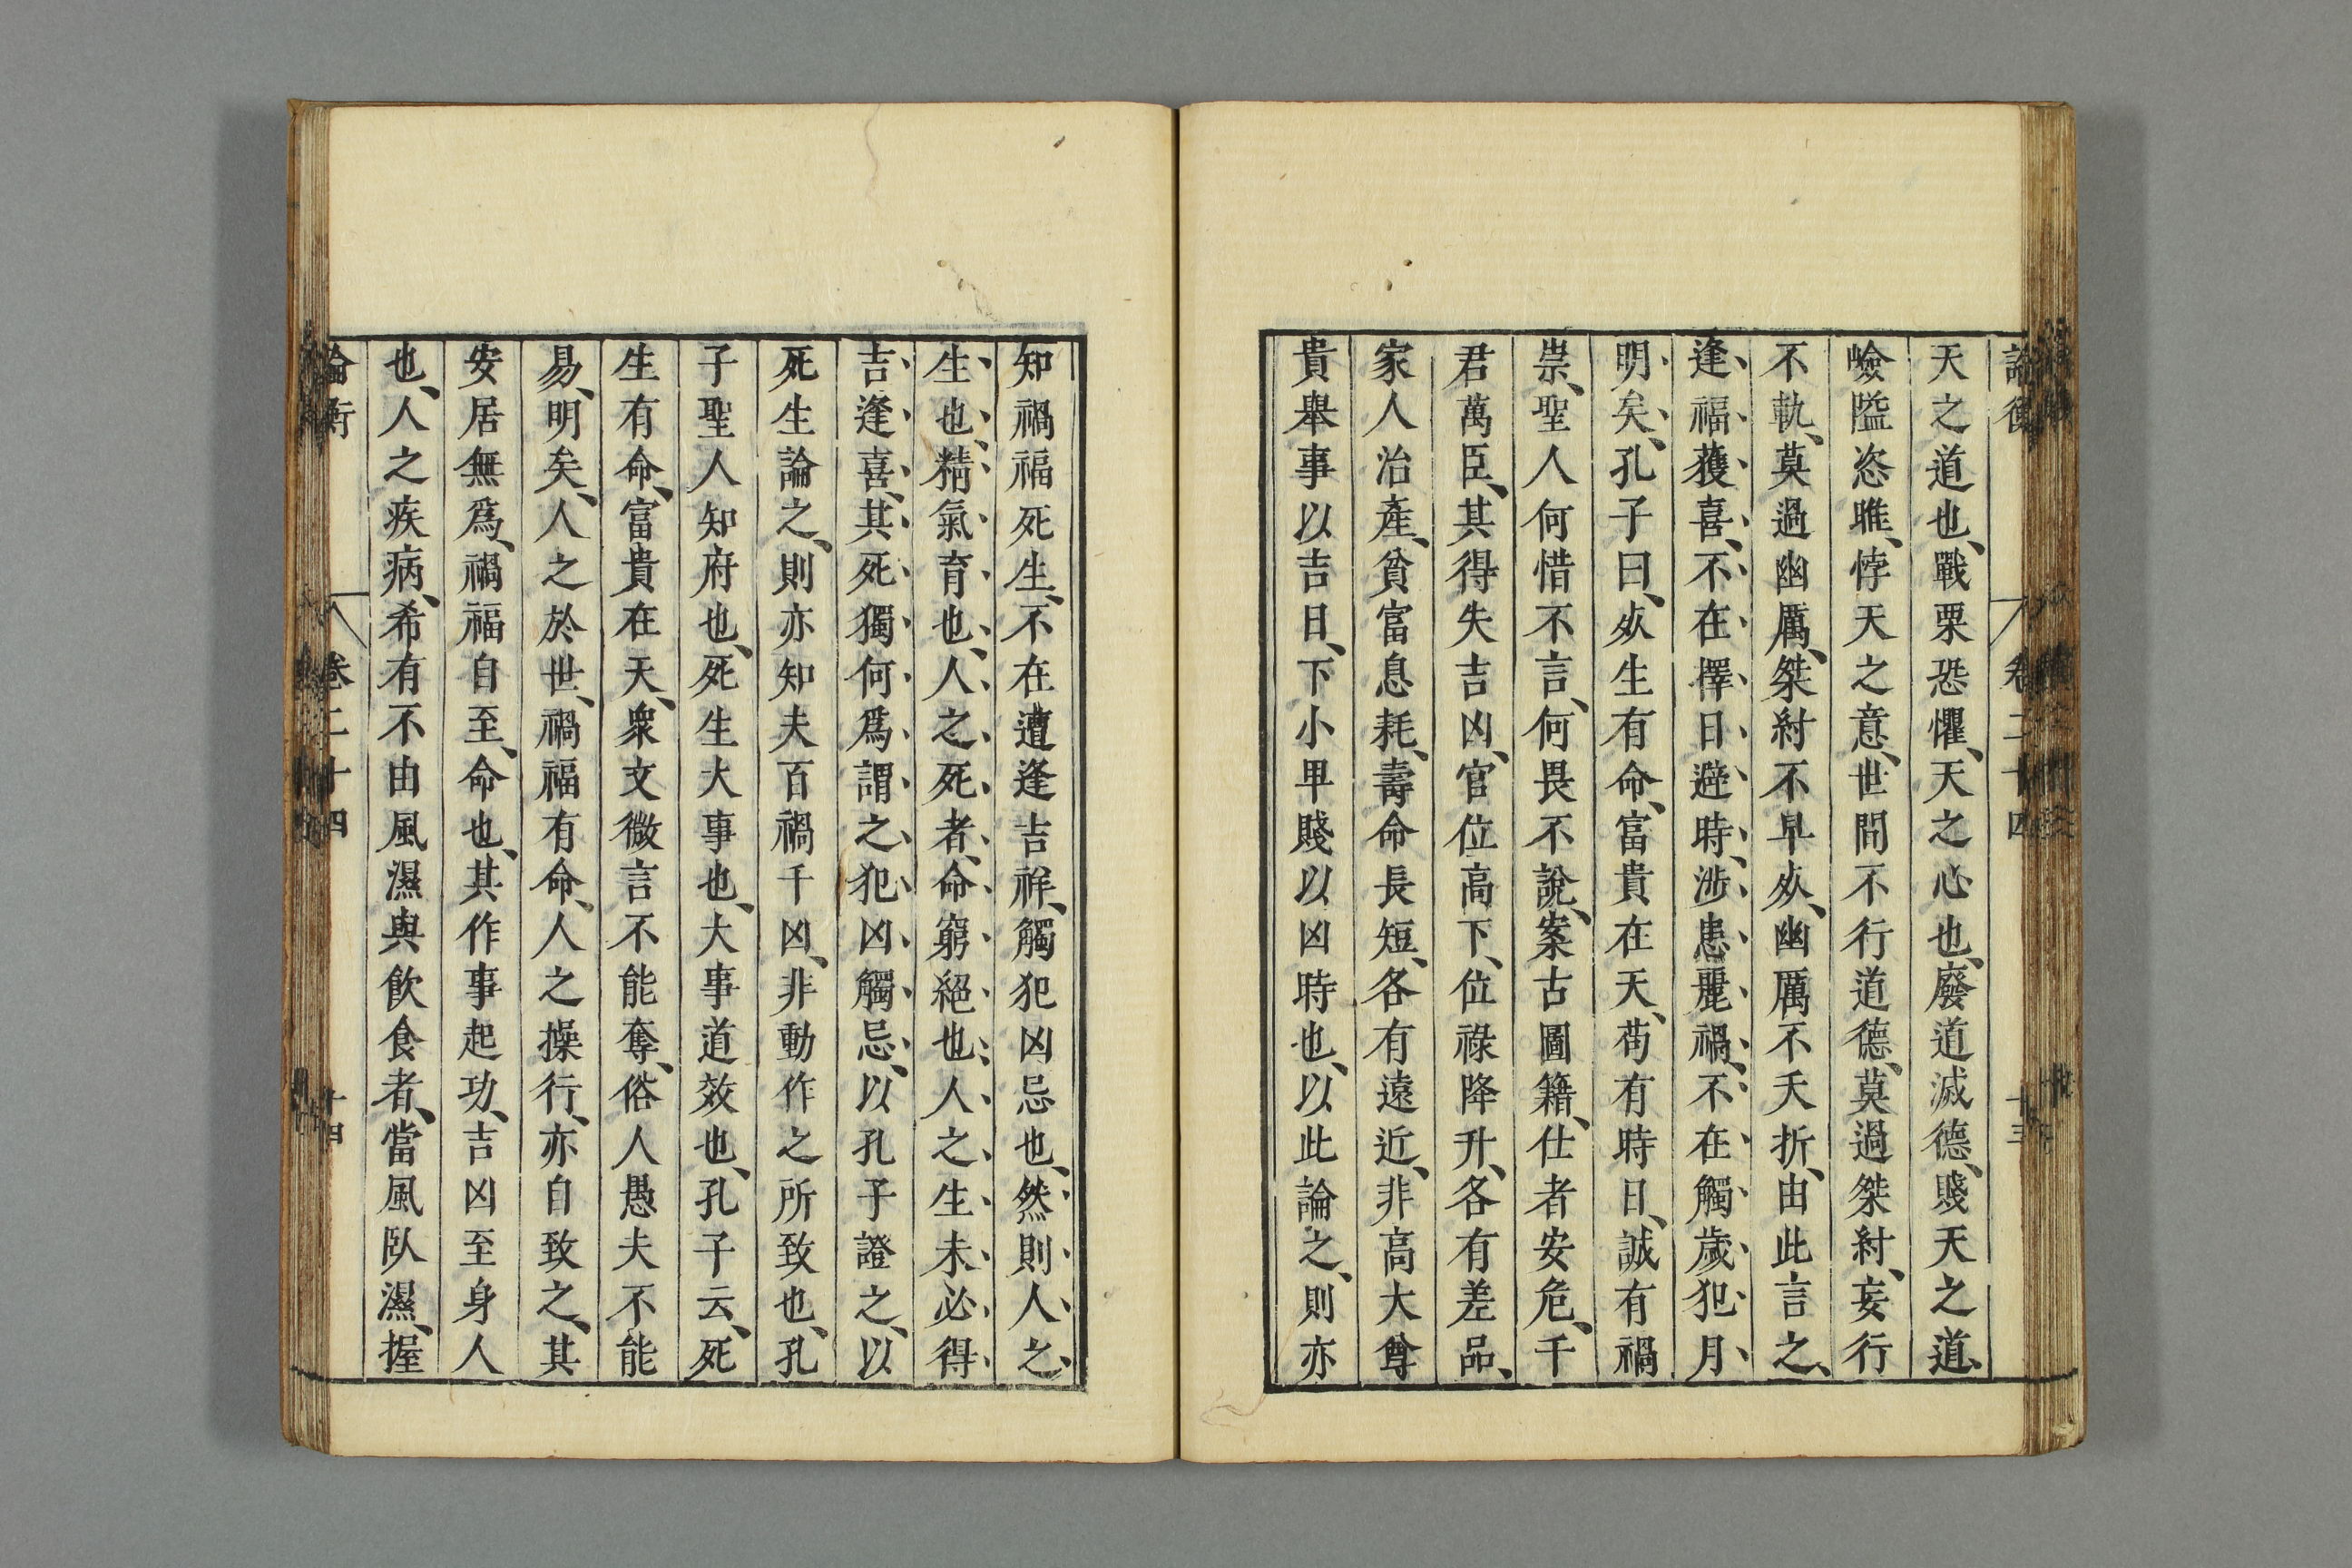 論衡 卷二十四 十三
天之道也、戰栗恐懼、天之心也、廢道滅德、賤天之道、
嶮隘恣雎、悖天之意、世間不行道德、莫過桀紂、妄行
不軌、莫過幽厲、桀紂不早㱕、幽厲不夭折、由此言之、
逢福獲喜、不在擇日避時、涉患麗禍、不在觸歲犯月、
明矣、孔子曰、㱕生有命、富貴在天、苟有時日、誠有禍
祟、聖人何惜不言、何畏不說、案古圖籍、仕者安危、千
君萬臣、其得失吉凶、官位高下、位祿降升、各有差品、
家人治產、貧富息耗、壽命長短、各有遠近、非高大尊
貴舉事以吉日、下小卑賤以凶時也、以此論之、則亦
知禍福死生、不在遭逢吉祥、觸犯凶忌也、然則人之
生也、精氣育也、人之死者、命窮絕也、人之生未必得
吉逢喜、其死獨何爲謂之犯凶觸忌、以孔子證之、以
死生論之、則亦知夫百禍千凶、非動作之所致也、孔
子聖人知府也、死生大事也、大事道效也、孔子云、死
生有命、富貴在天、衆文微言不能奪、俗人愚夫不能
易、明矣、人之於世、禍福有命、人之操行、亦自致之、其
安居無爲、禍福自至、命也、其作事起功、吉凶至身、人
也、人之疾病、希有不由風濕與飲食者、當風臥濕、握
論衡 卷二十四 十四